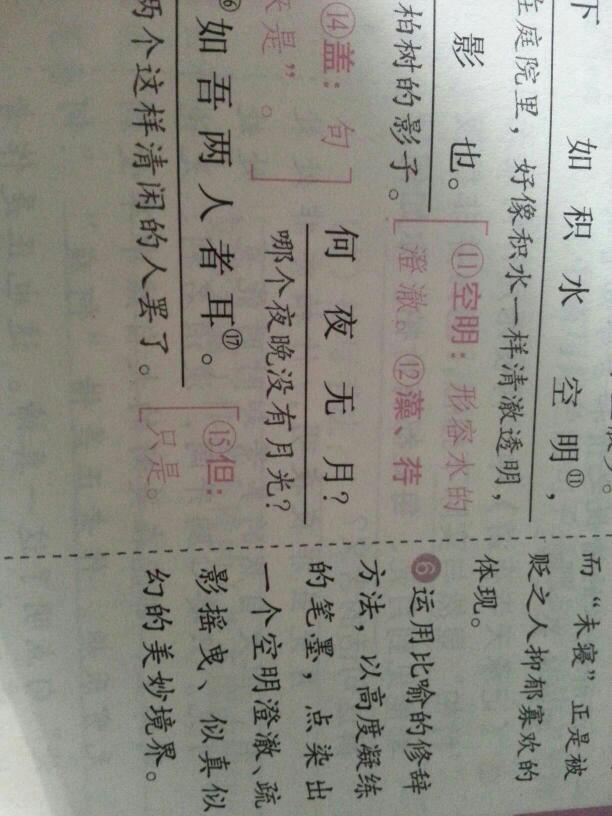 下如积水空明⑪，
在庭院里，好像积水一样清澈透明，
影也。 ⑪空明：形容水的
柏树的影子。 澄澈。⑫藻、荇
⑭盖：句 何夜无月？
是”。 哪个夜晚没有月光？
⑯如吾两人者耳⑰。 ⑮但：
两个这样清闲的人罢了。 只是。
而“未寝”正是被
贬之人抑郁寡欢的
体现。
❻运用比喻的修辞
方法，以高度凝练
的笔墨，点染出
一个空明澄澈、疏
影摇曳、似真似
幻的美妙境界。